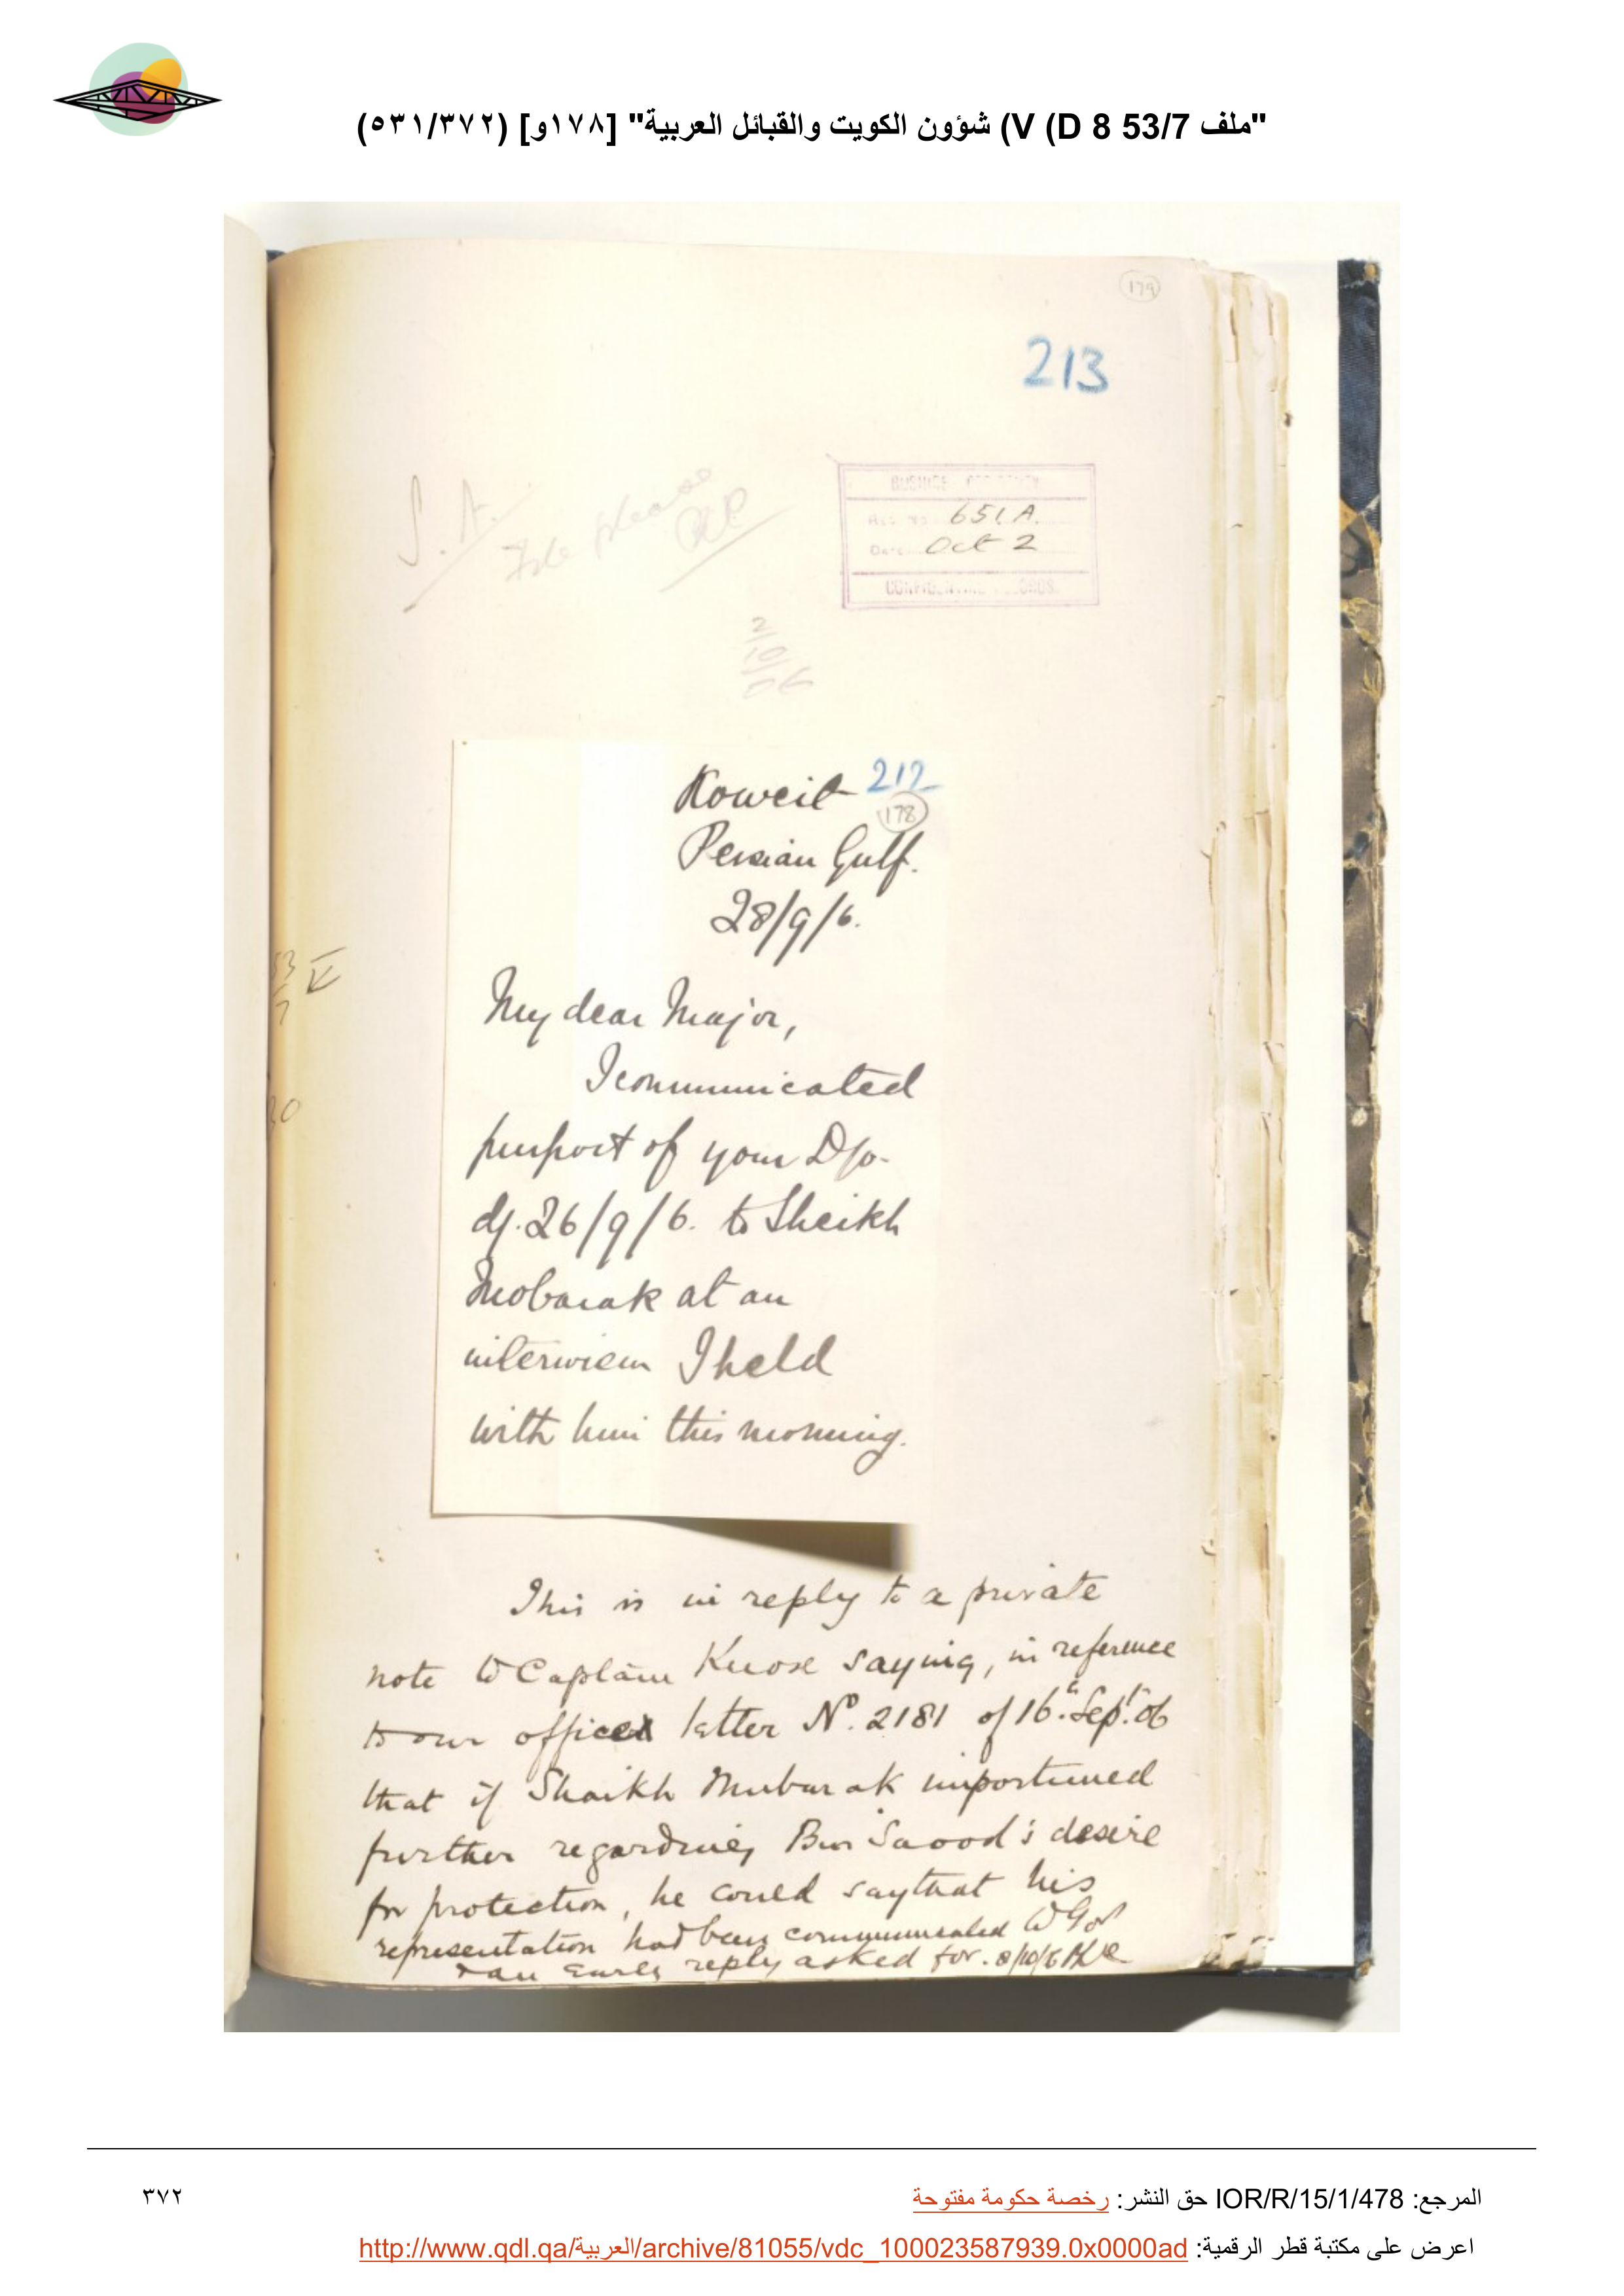 "ملف 53/7 D 8) V) شؤون الكويت والقبائل العربية" [١٧٨و] (٥٣١/٣٧٢)
179
213
S. A.
File please
651. A.
Date Oct 2
CONFIDENTIAL RECORDS.
2/10/06
Koweit 212
178
Persian Gulf.
28/9/6.
My dear Major,
I communicated
purport of your D/o-
d/. 26/9/6. to Sheikh
Mobarak at an
interview I held
with him this morning.
This is in reply to a private
note to Captain Knox saying, in reference
to our office letter No. 2181 of 16th Sept. 06
that if Shaikh Mubarak importuned
further regarding Bin Saood's desire
for protection, he could say that his
representation had been communicated to Govt
& an early reply asked for. 8/10/6
المرجع: IOR/R/15/1/478 حق النشر: رخصة حكومة مفتوحة
٣٧٢
اعرض على مكتبة قطر الرقمية: http://www.qdl.qa/العربية/archive/81055/vdc_100023587939.0x0000ad